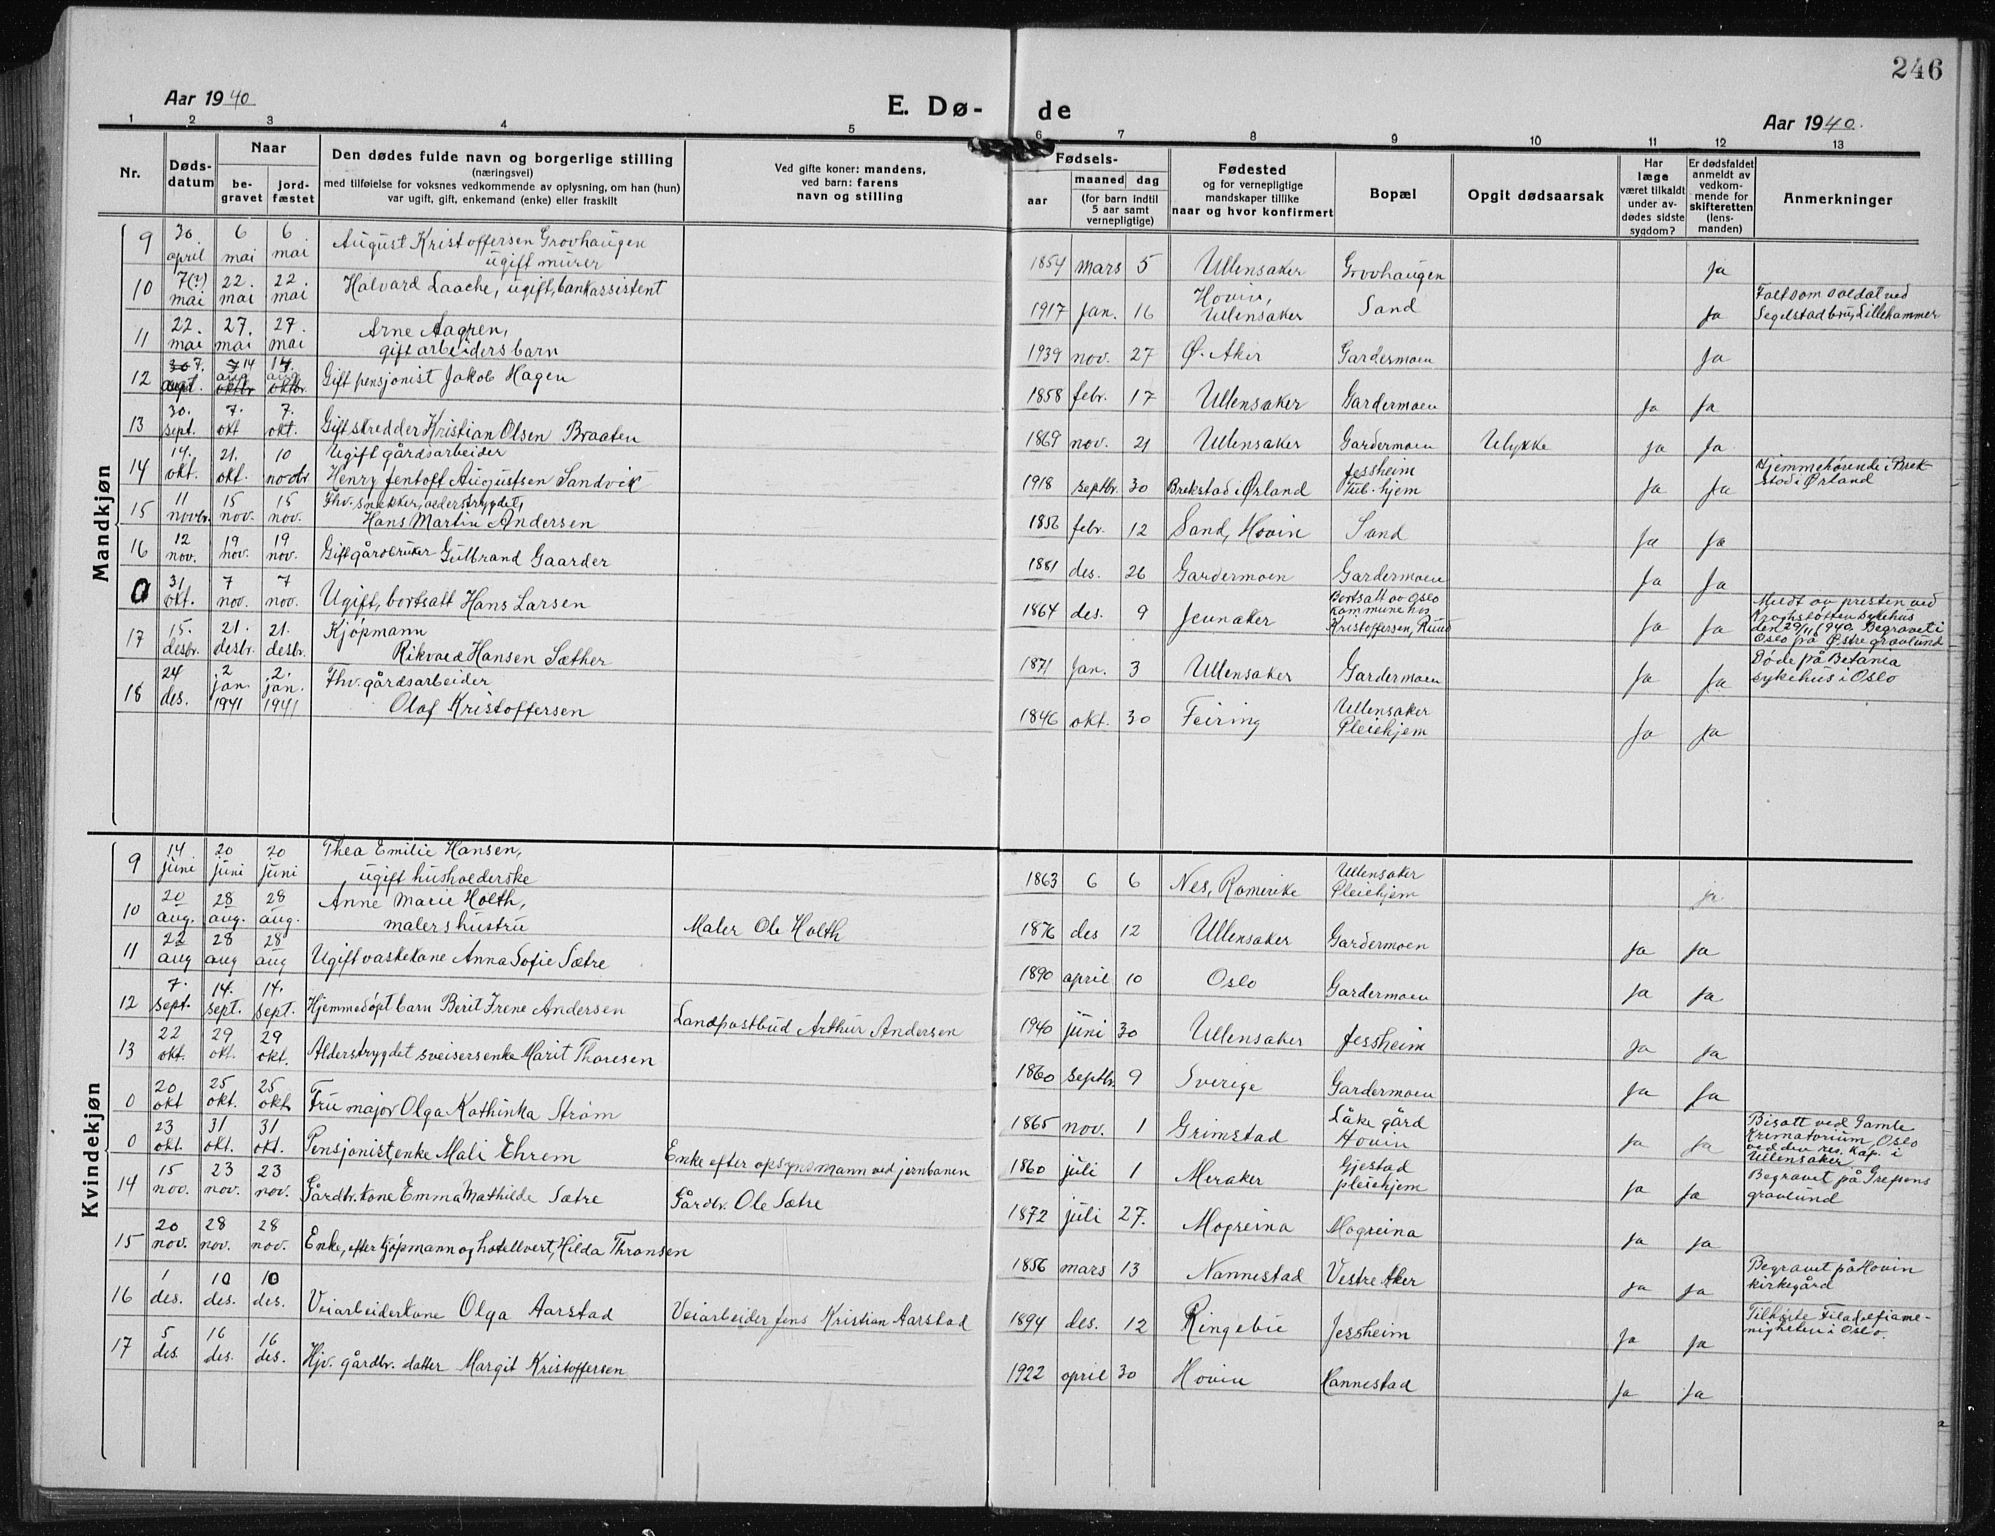 246
Aar 1940
E. Dø-
de
Aar 1940.
1 2 3 4 5 6 7 8 9 10 11 12 13
Nr.
Døds-
datum
Naar
be-
gravet
jord-
fæstet
Den dødes fulde navn og borgerlige stilling
(næringsvei)
med tilføielse for voksnes vedkommende av oplysning, om han (hun)
var ugift, gift, enkemand (enke) eller fraskilt
Ved gifte koner: mandens,
ved barn: farens
navn og stilling
Fødsels-
aar
maaned dag
(for barn indtil
5 aar samt
vernepligtige)
Fødested
og for vernepligtige
mandskaper tillike
naar og hvor konfirmert
Bopæl
Opgit dødsaarsak
Har
læge
været tilkaldt
under av-
dødes sidste
sygdom?
Er dødsfaldet
anmeldt av
vedkom-
mende for
skifteretten
(lens-
manden)
Anmerkninger
Mandkjøn
9 30. april 6 mai 6 mai August Kristoffersen Grovhaugen
ugift murer
1854 mars 5 Ullensaker Grovhaugen ja
10 7(?) mai 22. mai 22. mai Halvard Laache, ugift, bankassistent
1917 Jan. 16 Hovin,
Ullensaker Sand Ja
Falt som soldat ved
Segelstad bru, Lillehammer
11 22. mai 27. mai 27. mai Arne Aagren,
gift arbeiders barn
1939 nov. 27 Ø. Aker Gardermoen Ja
12 30 7. aug. 7 14 aug oktbr 14 aug oktbr. Gift pensjonist Jakob Hagen
1858 febr. 17 Ullensaker Gardermoen Ja Ja
13 30. sept. 7. okt 7. okt. Gift skredder Kristian Olsen Braaten
1869 nov. 21 Ullensaker Gardermoen Ulykke Ja Ja
14 14. okt. 21. okt. 10 novbr Ugift gårdsarbeider
Henry Jentoft Augustsen Sandvik
1918 septbr. 30 Brekstad i Ørland Jessheim
Tub. hjem Ja Ja
Hjemmehørende i Brek-
stad i Ørland
15 11 novbr. 15 nov. 15 nov. Fhv. snekker, alderstrygdet,
Hans Martin Andersen
1856 febr. 12 Sand, Hovin Sand Ja Ja
16 12 nov. 19 nov. 19 nov. Gift gårdbruker Gulbrand Gaarder
1881 des. 26 Gardermoen Gardermoen Ja Ja
0 31 okt. 7 nov. 7 nov. Ugift, bortsatt Hans Larsen
1864 des. 9 Jevnaker Bortsatt av Oslo
kommune hos
Kristoffersen, Ruud Ja Ja
Meldt av presten ved
Kroghstøtten sykehus
den 29/11 1940. Begravet i
Oslo på Østre gravlund
17 15. desbr. 21. desbr. 21. desbr. Kjøpmann
Rikvard Hansen Sæther
1871 Jan. 3 Ullensaker Gardermoen Ja Ja
Døde på Betania
sykehus i Oslo
18 24 des. 2 jan. 1941 2. jan. 1941 Fhv. gårdsarbeider
Olaf Kristoffersen
1846 okt. 30 Feiring Ullensaker
Pleiehjem Ja Ja
Kvindekjøn
9 14 juni 20 juni 20 juni Thea Emilie Hansen,
ugift husholderske
1863 6 6 Nes, Romerike Ullensaker
Pleiehjem ja
10 20 aug. 28 aug. 28 aug. Anne Marie Holth,
malers hustru Maler Ole Holth
1876 des 12 Ullensaker Gardermoen Ja Ja
11 22 aug 28 aug 28 aug Ugift vaskekone Anna Sofie Sætre
1890 april 10 Oslo Gardermoen Ja Ja
12 7. sept. 14. sept. 14. sept. Hjemmedøpt barn Berit Irene Andersen Landpostbud Arthur Andersen
1940 juni 30 Ullensaker Jessheim Ja Ja
13 22 okt. 29 okt. 29 okt. Alderstrygdet sveisersenke Marit Thoresen
1860 septbr. 9 Sverige Gardermoen Ja Ja
0 20 okt 25 okt. 25 okt Fru major Olga Kathinka Strøm
1865 nov. 1 Grimstad Låke gård
Hovin Ja Ja
Bisatt ved Gamle
Krematorium, Oslo
ved den res. kap. i
Ullensaker
0 23 okt. 31 okt. 31 okt. Pensjonist, enke Mali Ehrem Enke efter opsynsmann ved jernbanen
1860 juli 1 Meraker Gjestad
pleiehjem Ja Ja
Begravet på Grefsens
gravlund
14 15 nov. 23 nov. 23 nov. Gårdbr. kone Emma Mathilde Sætre Gårdbr. Ole Sætre
1872 juli 27. Mogreina Mogreina Ja Ja
15 20 nov. 28 nov. 28 nov. Enke, efter kjøpmann og hotellvert, Hilda Thransen
1856 mars 13 Nannestad Vestre Aker Ja Ja
Begravet på Hovin
kirkegård
16 1 des. 10 des. 10 des. Veiarbeiderkone Olga Aarstad Veiarbeider Jens Kristian Aarstad
1894 des. 12 Ringebu Jessheim Ja Ja
Tilhørte Filadelfiame-
nigheten i Oslo.
17 5 des. 16 des. 16 des. Hjv. gårdbr. datter Margit Kristoffersen
1922 april 30 Hovin Nannestad Ja Ja